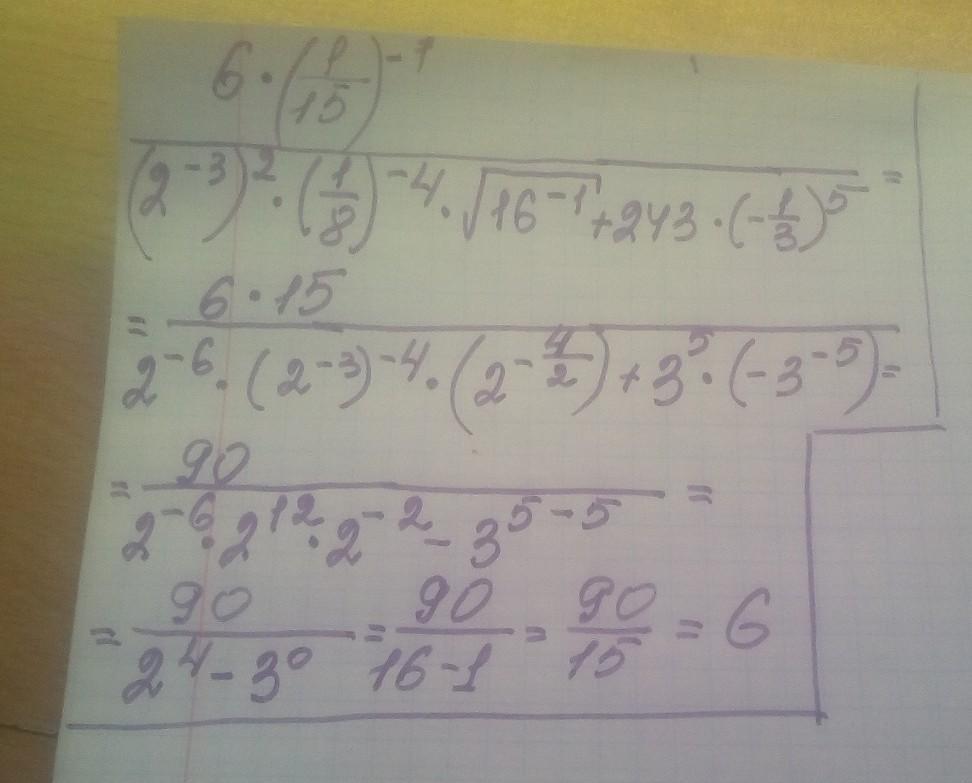 6 · (1/15)^-1
(2^-3)^2 · (1/8)^-4 · √16^-1 + 243 · (-1/3)^5 =
= 6 · 15
2^-6 · (2^-3)^-4 · (2^-4/2) + 3^5 · (-3^-5) =
= 90 =
2^-6 · 2^12 · 2^-2 - 3^5-5
= 90/2^4 - 3^0 = 90/16-1 = 90/15 = 6